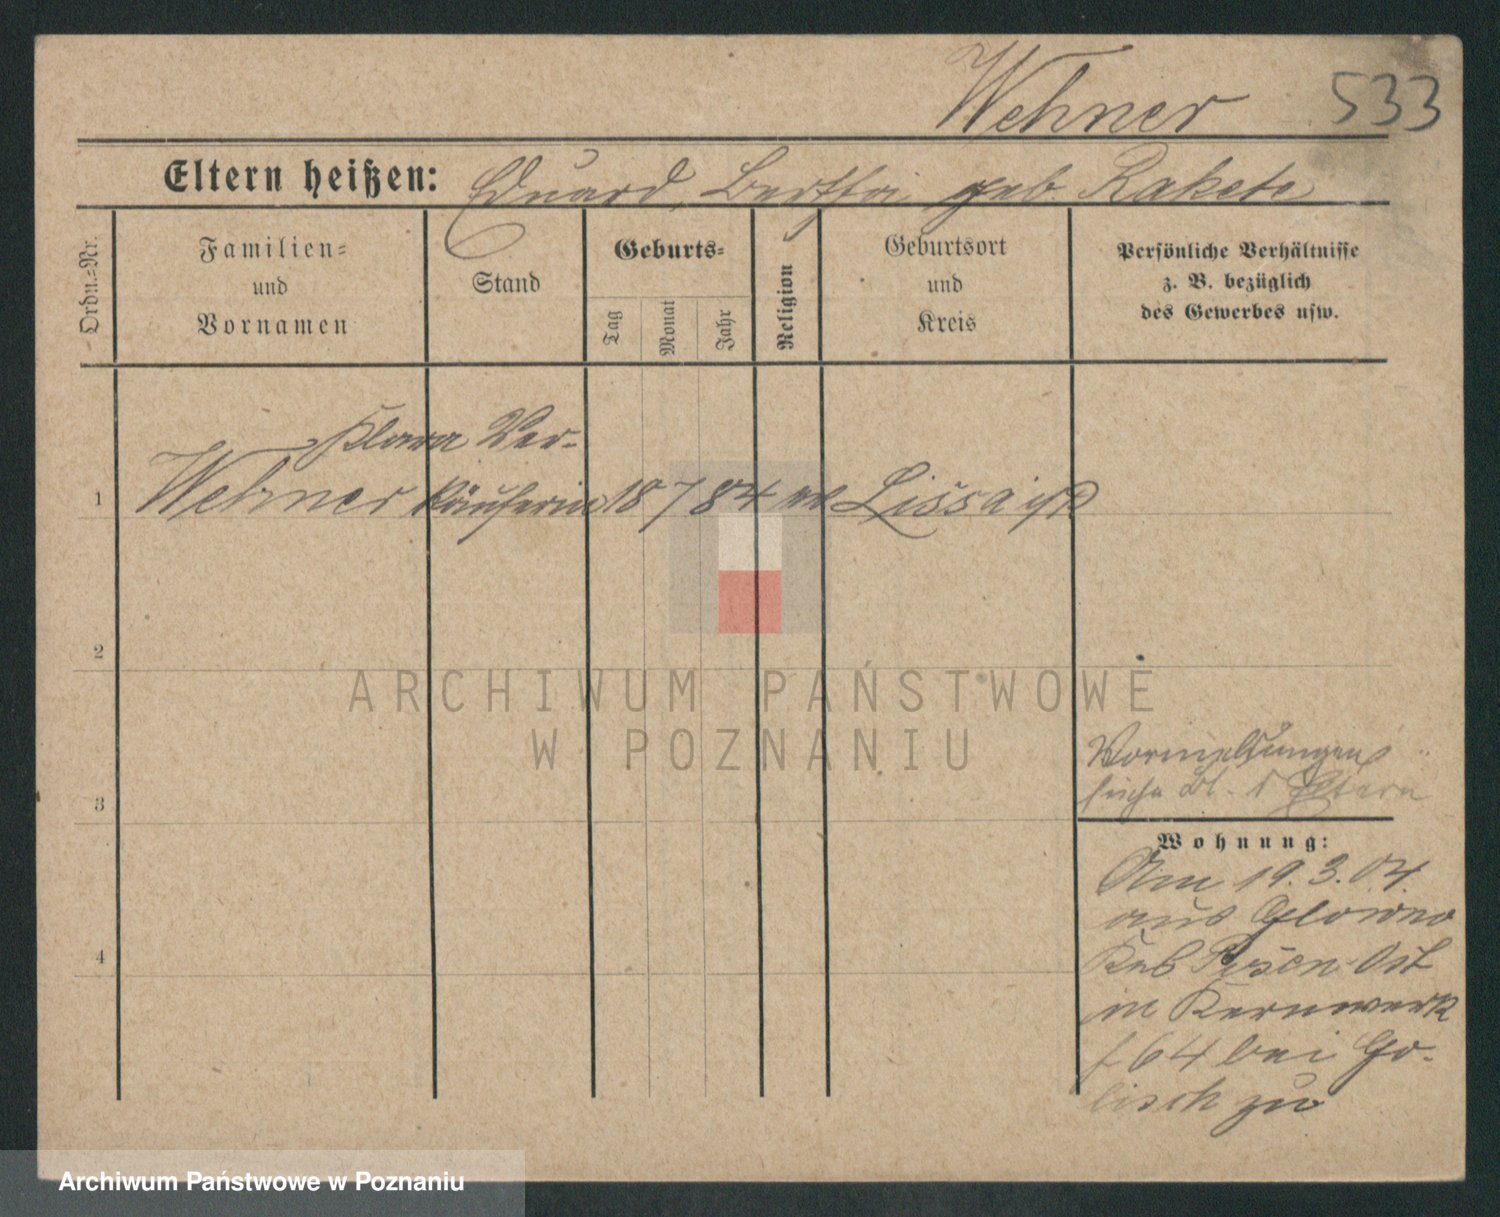 Wehner 533
Eltern heißen: Eduard, Bertha geb. Rakete
Ordn.-Nr.
Familien-
und
Vornamen
Stand
Geburts-
Tag
Monat
Jahr
Religion
Geburtsort
und
Kreis
Persönliche Verhältnisse
z. B. bezüglich
des Gewerbes usw.
Klara Ver-
1 Wehner käuferin 18 7 84 Lissa i/P
2
ARCHIWUM PAŃSTWOWE
W POZNANIU
Vormeldungen
siehe Bl. d Eltern
3
Wohnung:
Am 19. 3. 04.
aus Glowno
Posen-Ost
in Kernwerk
64 bei Go-
lisch zu
4
Archiwum Państwowe w Poznaniu